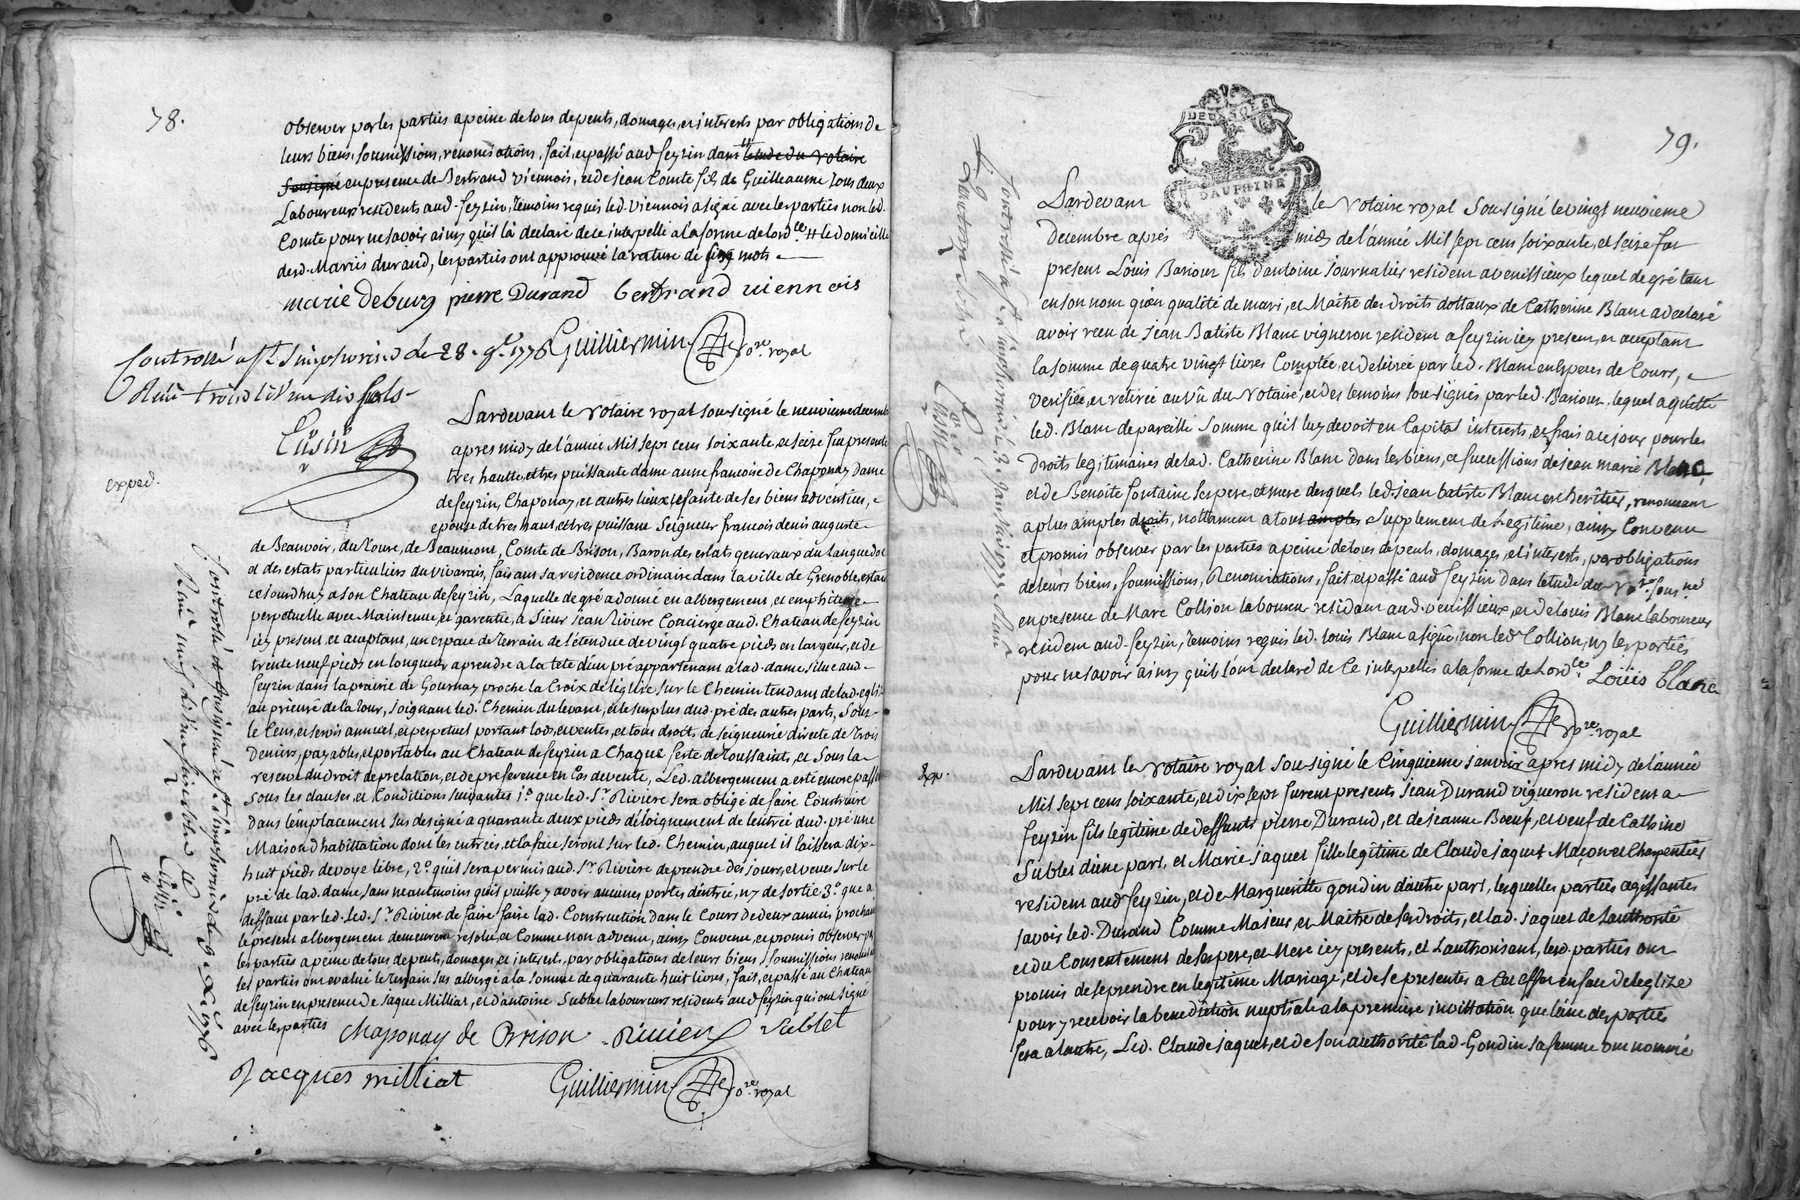 78.
observer par les parties a peine de tous depents, domages, et interests par obligations de
leurs biens, soumissions, renonciations, fait, et passé aud feyzin dans l'etude du Notaire
Sousigné en presence de Bertrand Viennois, et de Jean Comte fils de Guilleaume tous deux
Laboureurs residents aud. feyzin, temoins requis led. Viennois a signé avec les parties non led.
Comte pour ne savoir ainsy qu'il l'a declaré de ce interpellé a la forme de l'ord.ce # le domicille
desd. Mariés durand, les parties ont approuvé la rature de cinq mots
marie debuvy pierre Durand bertrand viennois
Guilliermin No.re royal
Controllé a St Simphorien le 28. 9.e 1776
Reçu trois livres dix sols
Cusin
exped.
Pardevant le Notaire royal sousigné le neuvieme decembre
apres midy de l'année Mil sept cens soixante, et seize fut presente
tres haute, et tres puissante dame anne francoise de Chaponay dame
de feyzin, Chaponay, et autres lieux, usante de ses biens adventifs,
epouse de tres haut, et tres puissant Seigneur francois denis auguste
de Beauvoir, du Roure, de Beaumont, Comte de Brison, Baron des estats generaux du Languedoc
et des estats particuliers du vivarais, faisant sa residence ordinaire dans la ville de Grenoble, estant
ce jourd'huy a son Chateau de feyzin, Laquelle de gré a donné en albergement, et emphiteose
perpetuelle avec Maintenue, et garentie, a Sieur Jean Riviere Concierge aud. Chateau de feyzin
icy present, et acceptant, un espace de terrain de l'etendue de vingt quatre pieds en largeur, et de
trente neuf pieds en longueur a prendre a la tete d'un pré appartenant a lad. dame situé aud.
feyzin dans la prairie de Gournay proche la Croix de l'eglise sur le Chemin tendant de lad. eglise
au prieuré de la Tour, joignant led. Chemin du levant, et le surplus dud. pré des autres parts, sous
le Cens, et servis annuel, et perpetuel portant lods, et ventes, et tous droits de seigneurie directe de trois
Deniers, payables, et portables au Chateau de feyzin a Chaque feste de Toussaint, et sous la
reserve du droit de prelation, et de preference en Cas de vente, Led. albergement a esté encore passé
sous les clauses, et Conditions suivantes 1.° que led. S.r Riviere sera obligé de faire Construire
dans l'emplacement sus designé a quarante deux pieds d'eloignement de l'entrée dud. pré une
Maison d'habittation dont les entrées, et la face seront sur led. Chemin, auquel il laissera dix
huit pieds de voye libre, 2.° qu'il sera permis aud. S.r Riviere de prendre des jours, et vues sur le
pré de lad. dame sans neantmoins qu'il puisse y avoir aucunes portes d'entrée, ny de sortie 3.° que a
deffaut par led. Led. S.r Riviere de faire faire lad. Construction dans le Cours de deux années prochaines
le present albergement demeurera resolu, et Comme non advenu, ainsy Convenu, et promis observer par
les parties a peine de tous depents, domages, et interest, par obligations de leurs biens, soumissions renonciations
les parties ont evalué le terrain sus albergé a la somme de quarante huit livres, fait, et passé au Chateau
de feyzin en presence de Jaque Milliat, et d'antoine Sublet laboureurs residents aud feyzin qui ont signé
avec les parties
Chaponay de Brison Riviere Sublet
Jacques milliat Guilliermin No.re royal
Controllé et insinué a St Simphorien le
Cusin
79.
DEUX SOLS
DAUPHINE
Pardevant le Notaire royal Sousigné le vingt neuvieme
decembre aprés midy de l'année Mil sept cens soixante, et seize fut
present Louis Bariour fils d'antoine journalier resident a venissieux lequel de gré tant
en son nom qu'en qualité de mari, et Maitre des droits dottaux de Catherine Blanc a declaré
avoir reçu de Jean Batiste Blanc vigneron resident a feyzin icy present, et acceptant
la somme de quatre vingt livres Comptée, et delivrée par led. Blanc en Especes de Cours,
verifiée, et retirée au vû du Notaire, et des temoins sousignés par led. Bariour, lequel a quitté
led. Blanc de pareille Somme qu'il luy devoit en Capital interests, et frais a ce jour pour les
droits legitimaires de lad. Catherine Blanc dans les biens, et successions de jean marie Blanc
et de Benoite fontaine ses pere, et mere desquels led. Jean batiste Blanc est heritier, renoncant
a plus amples droits, nottament a tous amples Supplement de Legitime, ainsy Convenu
et promis observer par les parties a peine de tous depents, domages, et interests, par obligations
de leurs biens, soumissions, Renonciations, fait, et passé aud feyzin dans l'etude du No.re sous.né
en presence de Marc Collion laboureur resident aud. venissieux, et de louis Blanc laboureur
resident aud. feyzin, temoins requis led. louis Blanc a signé, non led Collion, ny les parties
pour ne savoir ainsy qu'ils l'ont declaré de Ce interpellés a la forme de L'ord.ces Louis blanc
Guilliermin No.re royal
Controllé a St Simphorien le
Cusin
Exp.
Pardevant le Notaire royal Sousigné le Cinquieme janvier apres midy de l'année
Mil sept cens soixante, et dix sept furent presents Jean Durand vigneron resident a
feyzin fils legitime de deffunts pierre Durand, et de jeanne Boeuf, et veuf de Cathine
Sublet d'une part, et Marie jaquet fille legitime de Claude jaquet Maçon et Charpentier
resident aud feyzin, et de Margueritte gondin d'autre part, lesquelles parties agissantes
savoir led. Durand Comme Majeur, et Maitre de ses droits, et lad. jaquet de l'authorité
et du Consentement de ses pere, et Mere icy presents, et L'authorisant, lesd. parties ont
promis de se prendre en legitime Mariage, et de se presenter a Cet effet en face de leglize
pour y recevoir la benediction nuptiale a la premiere invittation que l'une des parties
fera a l'autre, Led. Claude jaquet, et de son authorité lad. Gondin sa femme ont nommé